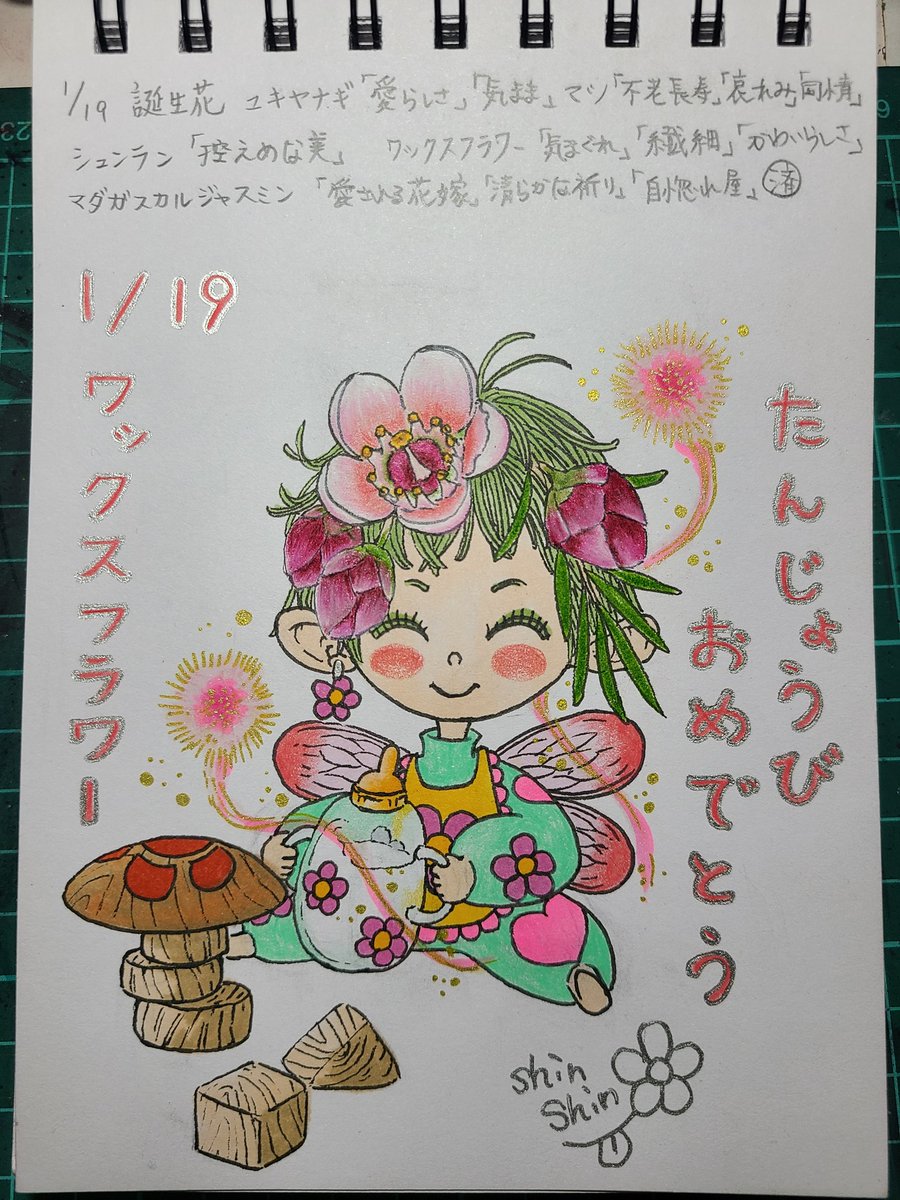 1/19 誕生花 ユキヤナギ「愛らしさ」「気まま」マツ「不老長寿」「哀れみ」「同情」
シュンラン「控えめな美」 ワックスフラワー「気まぐれ」「繊細」「かわいらしさ」
マダガスカルジャスミン 「愛される花嫁」「清らかな祈り」「自惚れ屋」済
1/19
ワックスフラワー
たんじょうび
おめでとう
shin
Shin
23
6